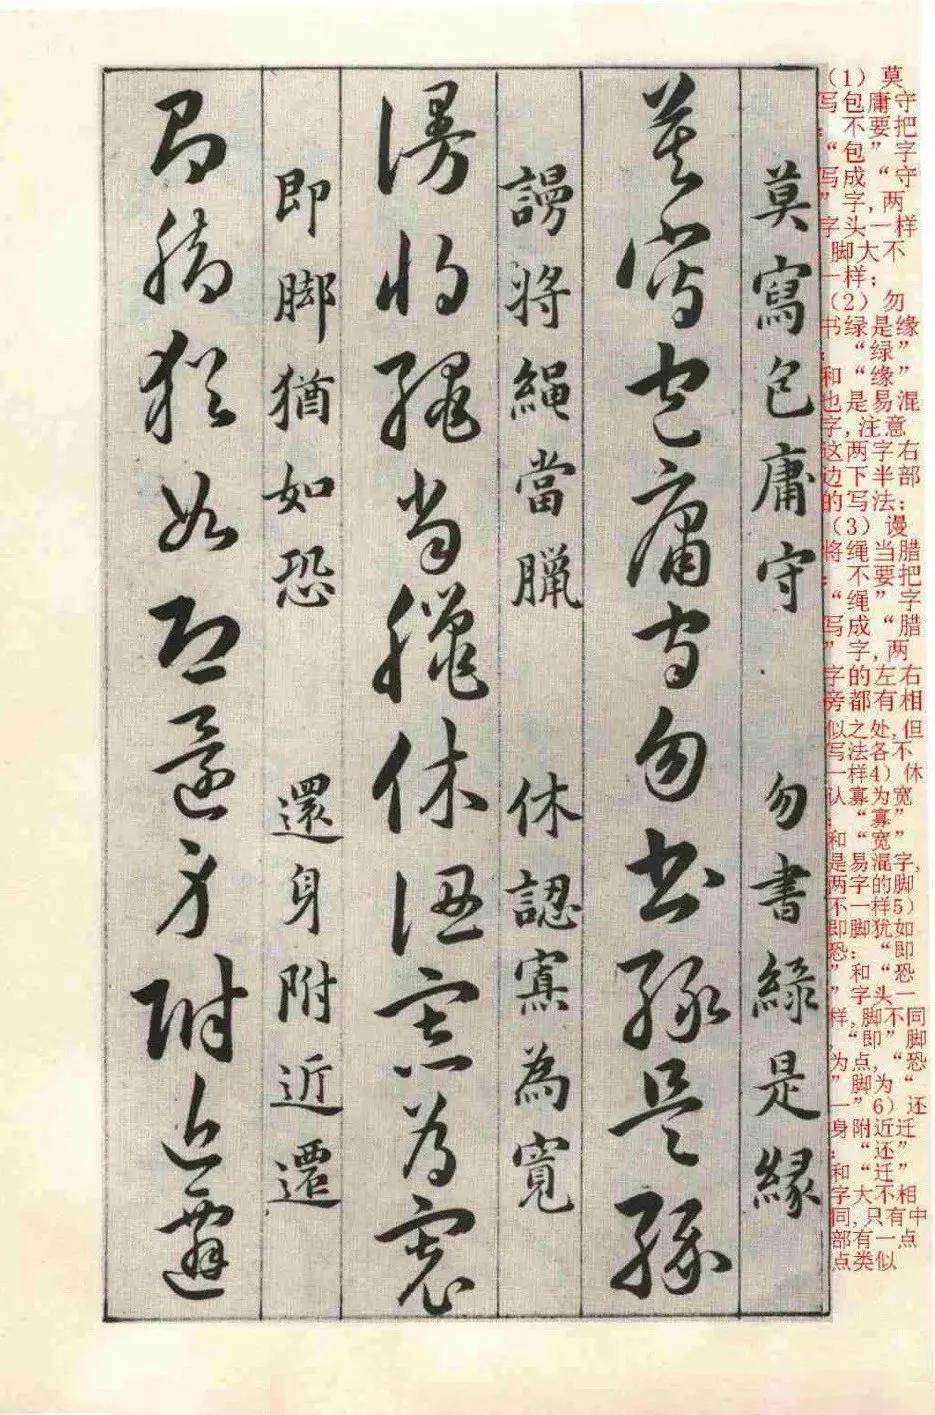 莫寫包庸守 勿書綠是緣
莫寫包庸守勿書綠是緣
謾將繩當臘 休認寡為寬
謾將繩當臘休認寡為寬
即腳猶如恐 還身附近遷
即腳猶如恐還身附近遷
（1）莫
写包庸守
：不要把
“包”字
写成“守
”字,两
字头一样
,脚大不
一样；
（2）勿
书绿是缘
：“绿”
和“缘”
也是易混
字,注意
这两字右
边下半部
的写法；
（3）谩
将绳当腊
：不要把
“绳”字
写成“腊
”字,两
字的左右
旁都有相
似之处,但
写法各不
一样4）休
认寡为宽
：“寡”
和“宽”
是易混字,
两字的脚
不一样5）
即脚犹如
恐：“即
”和“恐
”字头一
样,脚不同
,“即”脚
为点,“恐
”脚为“
一”6）还
身附近迁
：“还”
和“迁”
字大不相
同,只有中
部有一点
点类似